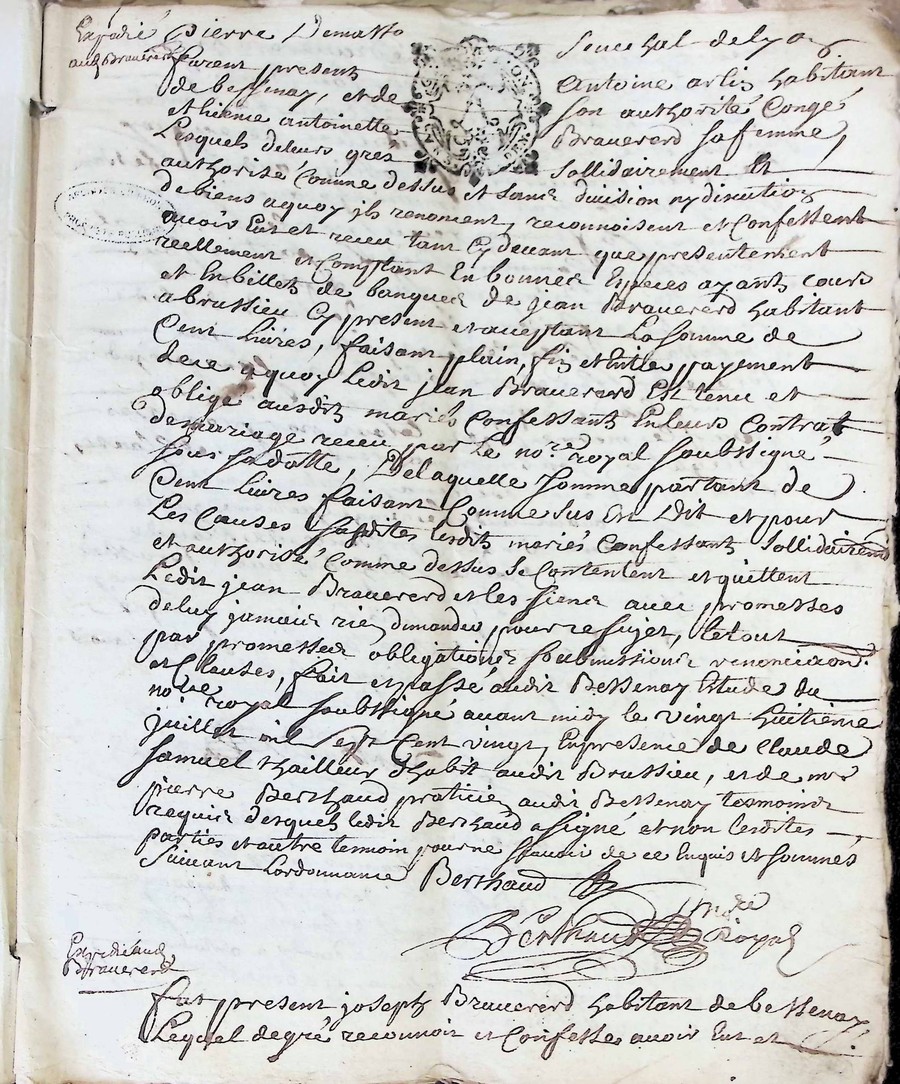 Expedié
aud Brauererd
pierre Dematto
Senechal de lyon
furent present Antoine arlis habitant
de bessenay, et de son authorité Congé
et licence antoinette Brauererd sa femme
Lesquels de leurs grés sollidairement Et
authorisé Comme dessus et sans division ny discution
de biens a quoy ils renoncent, reconnoisent et Confessent
avois Eut et receu tant Cy devant que presentement
reellement et Comptant En bonnes Especes ayants cours
et En billets de banques de Jean Brauererd habitant
a brussieu Cy present et aceptant La somme de
Cent Livres, faisant plain, fin et Entier payement
de ce a quoy Ledit jean Brauererd Est tenu et
obligé ausdits mariés Confessants En leurs Contrat
de mariage receu par Le no.re royal soubsigné
sous sa datte, De laquelle somme partant de
Cent Livres faisant Comme sus Est Dit et pour
Les Causes susdites lesdits mariés Confessants sollidairement
et authorisé Comme dessus se Contentent et quittent
Ledit jean Brauererd et les siens avec promesses
de luy jamais rien demander pour ce sujet, le tout
par promesses obligations soubmissions renonciaons
et Clauses, fait et passé audit Bessenay Etude du
no.re royal soubsigné avant midy le vingt huitieme
juillet mil sept Cent vingt, En presence de Claude
Samuel thailleur d'habit audit Brussieu, et de me
pierre Berthaud praticien audit Bessenay tesmoins
requis desquels ledit Berthaud a signé et non lesdites
parties et autre temoin pour ne scavoir de ce Enquis et sommés
suivant Lordonnance Berthaud
Berthaud no.re
Royal
Expedié aud
Brauererd
fut present joseph Brauererd habitant de bessenay
Lequel de gré reconnoit et Confesse avoir Eut et